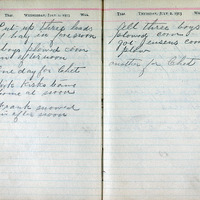 Wednesday, July 2, 1913
Put up three loads
of hay in forenoon
boys plowed corn
in afternoon
one day for Chet
home at noon
Frank mowed
in afternoon
Thursday, July 3, 1913
All three boys
plowed corn
got Jensens corn
plow
another for Chet